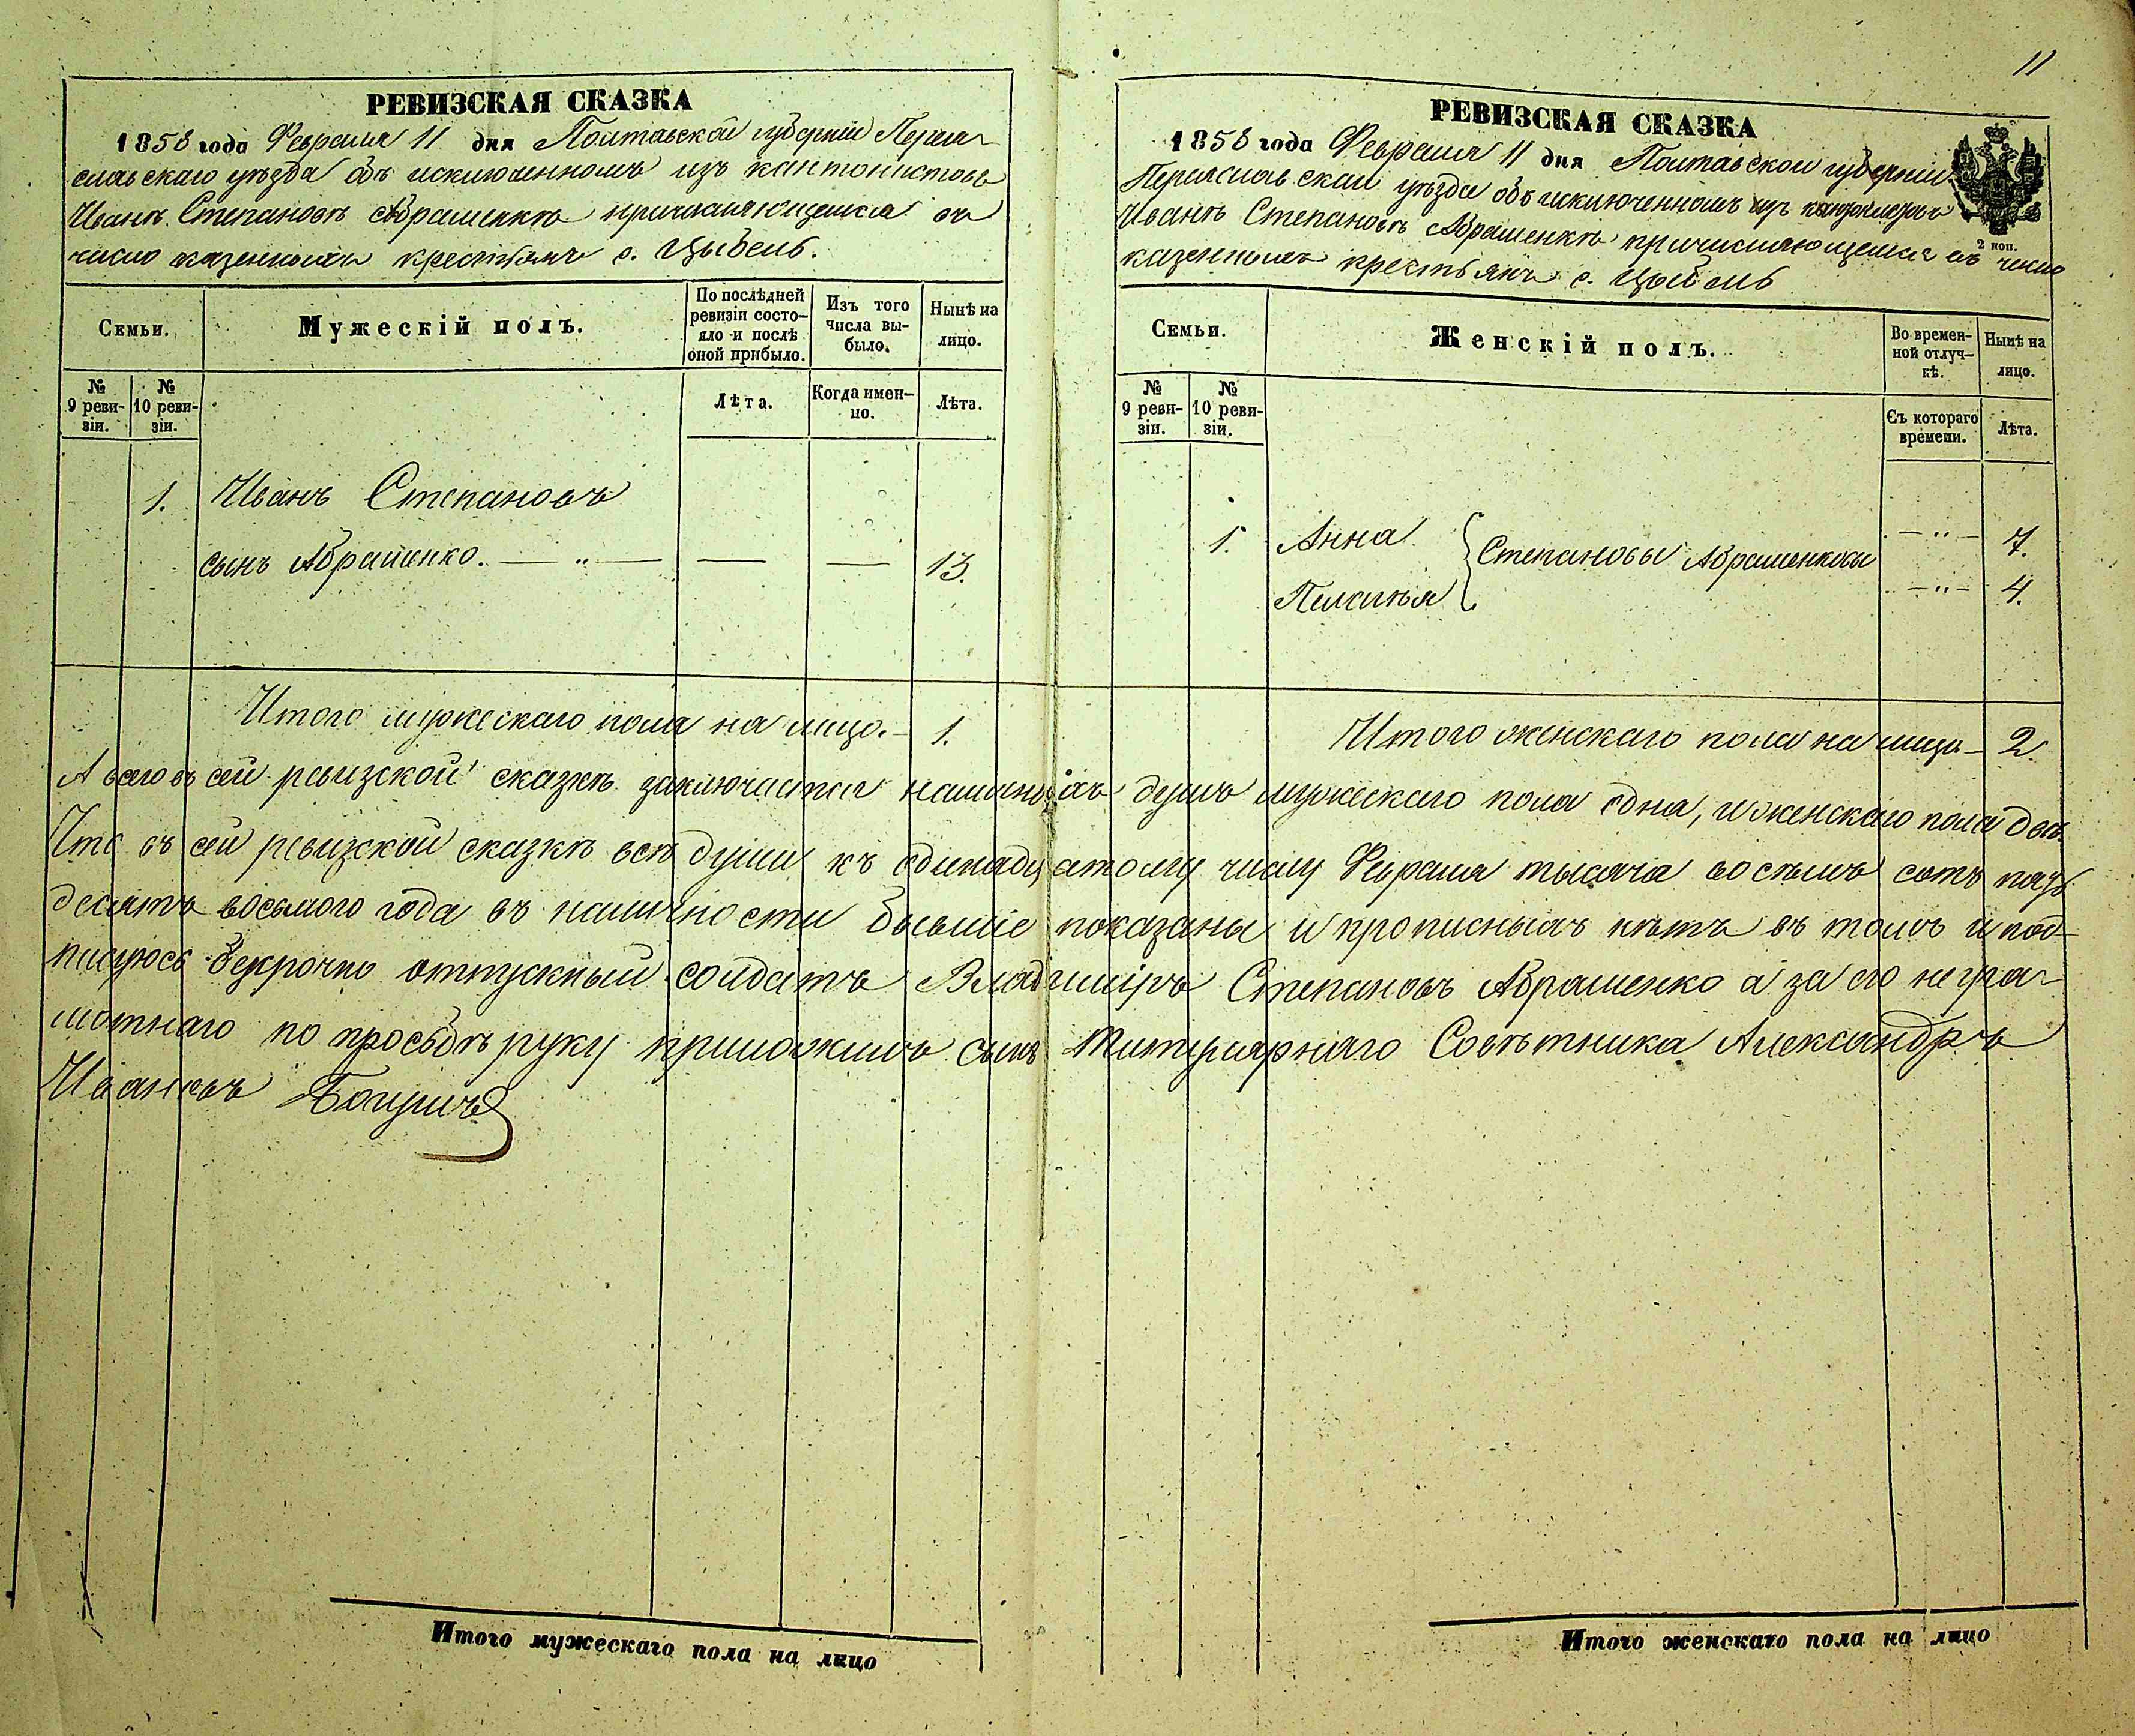 11
РЕВИЗСКАЯ СКАЗКА
1858 года Февраля 11 дня Полтавской губерніи Перея-
славскаго уѣзда объ исключенномъ изъ кантонистовъ
Иванѣ Степановѣ Абрашенкѣ причисляющемся въ
число казенныхъ крестьянъ с. Цыбель.
Семьи.
Мужескій полъ.
По послѣдней ревизіи состо-
яло и послѣ оной прибыло.
Изъ того числа вы-
было.
Нынѣ на лицо.
№ 9 реви-
зіи.
№ 10 реви-
зіи.
Лѣта.
Когда имен-
но.
Лѣта.
1. Иванъ Степановъ
сынъ Абрашенко. — „ — — — 13.
Итого мужескаго пола на лицо. – 1.
РЕВИЗСКАЯ СКАЗКА
1858 года Февраля 11 дня Полтавской губерніи
Переяславскаго уѣзда объ исключенномъ изъ кантонистовъ
Иванѣ Степановѣ Абрашенкѣ причисляющемся въ число
казенныхъ крестьянъ с. Цыбель
2 коп.
Семьи.
Женскій полъ.
Во времен-
ной отлуч-
кѣ.
Нынѣ на лицо.
№ 9 реви-
зіи.
№ 10 реви-
зіи.
Съ котораго времени.
Лѣта.
1. Анна Степановы Абрашенковы – „ – 7.
Пелагія – „ – 4.
Итого женскаго пола на лицо – 2.
А всего въ сей ревизской сказкѣ заключается наличныхъ душъ мужескаго пола одна, и женскаго пола двѣ.
Что въ сей ревизской сказкѣ всѣ души къ одинадцатому числу Февраля тысяча восемь сотъ пять
десятъ восьмого года въ наличности бывшіе показаны и прописныхъ нѣтъ въ томъ и под-
писуюсь безсрочно отпускный солдатъ Владиміръ Степановъ Абрашенко а за его негра-
мотнаго по просьбѣ руку приложилъ сынъ Титулярнаго Совѣтника Александръ
Ивановъ
Итого мужескаго пола на лицо
Итого женскаго пола на лицо